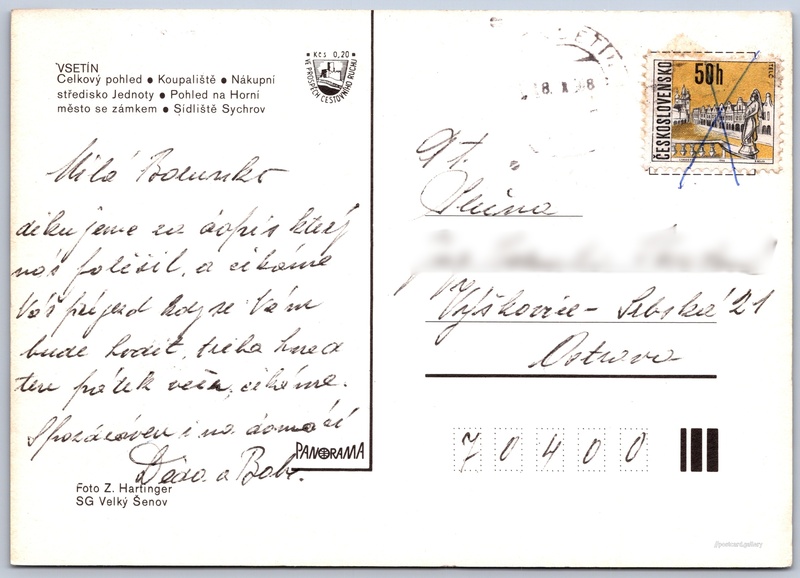 VSETÍN
Celkový pohled • Koupaliště • Nákupní
středisko Jednoty • Pohled na Horní
město se zámkem • Sídliště Sychrov
Kčs 0,20
VE PROSPĚCH CESTOVNÍHO RUCHU
Milá
děkujeme za dopis který
nás potěšil, a čekáme
Váš příjezd když se Vám
bude hodit, třeba hned
ten pátek večer, čekáme.
S pozdravem i na domácí
Děda a Bab.
PANORAMA
Foto Z. Hartinger
SG Velký Šenov
8. X
ČESKOSLOVENSKO
50h
TELČ
Výškovice - Srbská 21
Ostrava
70400
@postcard.gallery